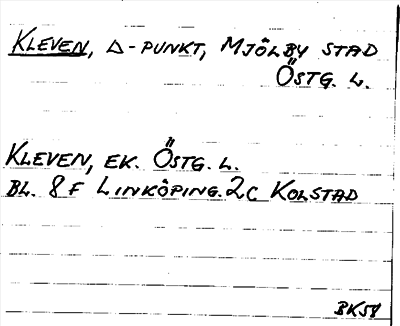 KLEVEN, △-PUNKT, MJÖLBY STAD
ÖSTG. L.
KLEVEN, EK. ÖSTG. L.
BL. 8 F LINKÖPING. 2C KOLSTAD
BK58